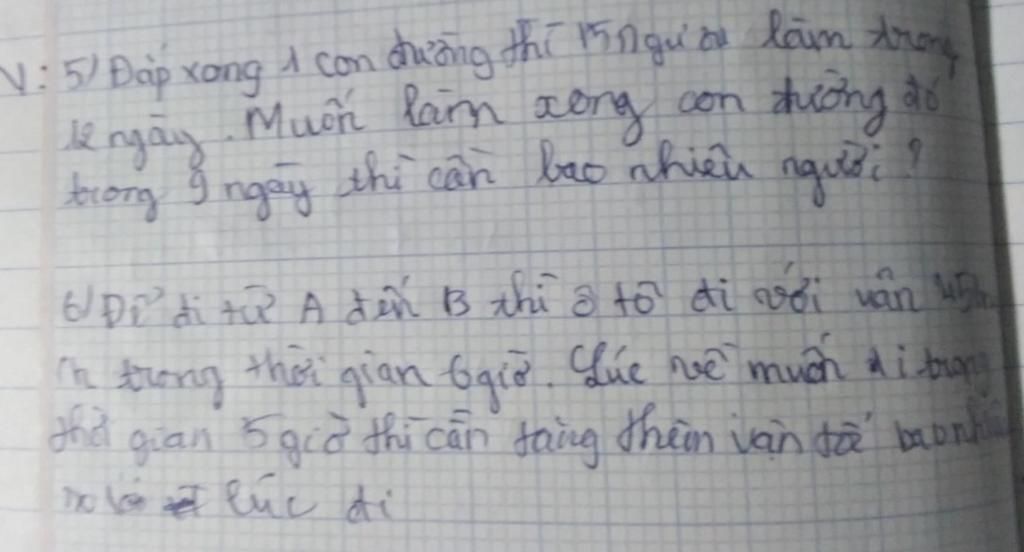 V: 5) Đắp xong 1 con đường thì 15 người làm trong
12 ngày. Muốn làm xong con đường đó
trong 9 ngày thì cần bao nhiêu người?
6) Để đi từ A đến B thì ô tô đi với vận
trong thời gian 6 giờ. Lúc về muốn đi trong
thời gian 5 giờ thì cần tăng thêm vận tốc
lúc đi